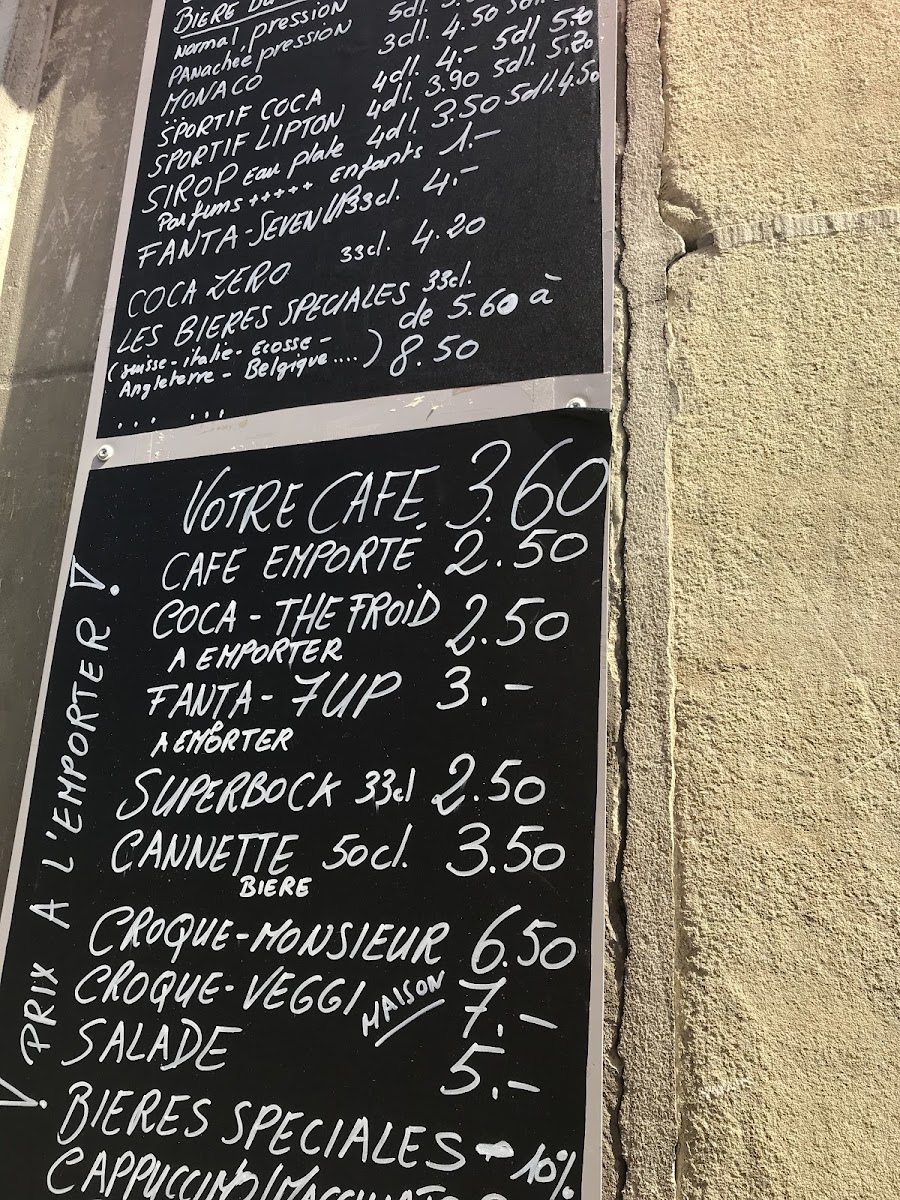 BIERE DU
Normal, pression 5dl.
PANachée, pression 3dl. 4.50
MONACO 4dl. 4.- 5dl 5.20
SPORTIF COCA 4dl. 3.90 5dl. 5.20
SPORTIF LIPTON 4dl. 3.50 5dl. 4.50
SIROP Eau plate enfants 1.-
Parfums +++++
FANTA-SEVEN UP 33cl. 4.-
COCA ZERO 33cl. 4.20
LES BIERES SPECIALES 33cl.
(suisse - italie - Ecosse - de 5.60 à
Angleterre - Belgique ....) 8.50
... ...
VOTRE CAFE 3.60
CAFE EMPORTÉ 2.50
COCA - THE FROID 2.50
A EMPORTER
FANTA - 7UP 3.-
A EMPORTER
SUPERBOCK 33cl 2.50
CANNETTE 50cl. 3.50
BIERE
CROQUE-MONSIEUR 6.50
CROQUE-VEGGI MAISON 7.-
SALADE 5.-
BIERES SPECIALES - 10%
CAPPUCCINO/MACCHIATO
! PRIX A L'EMPORTER !